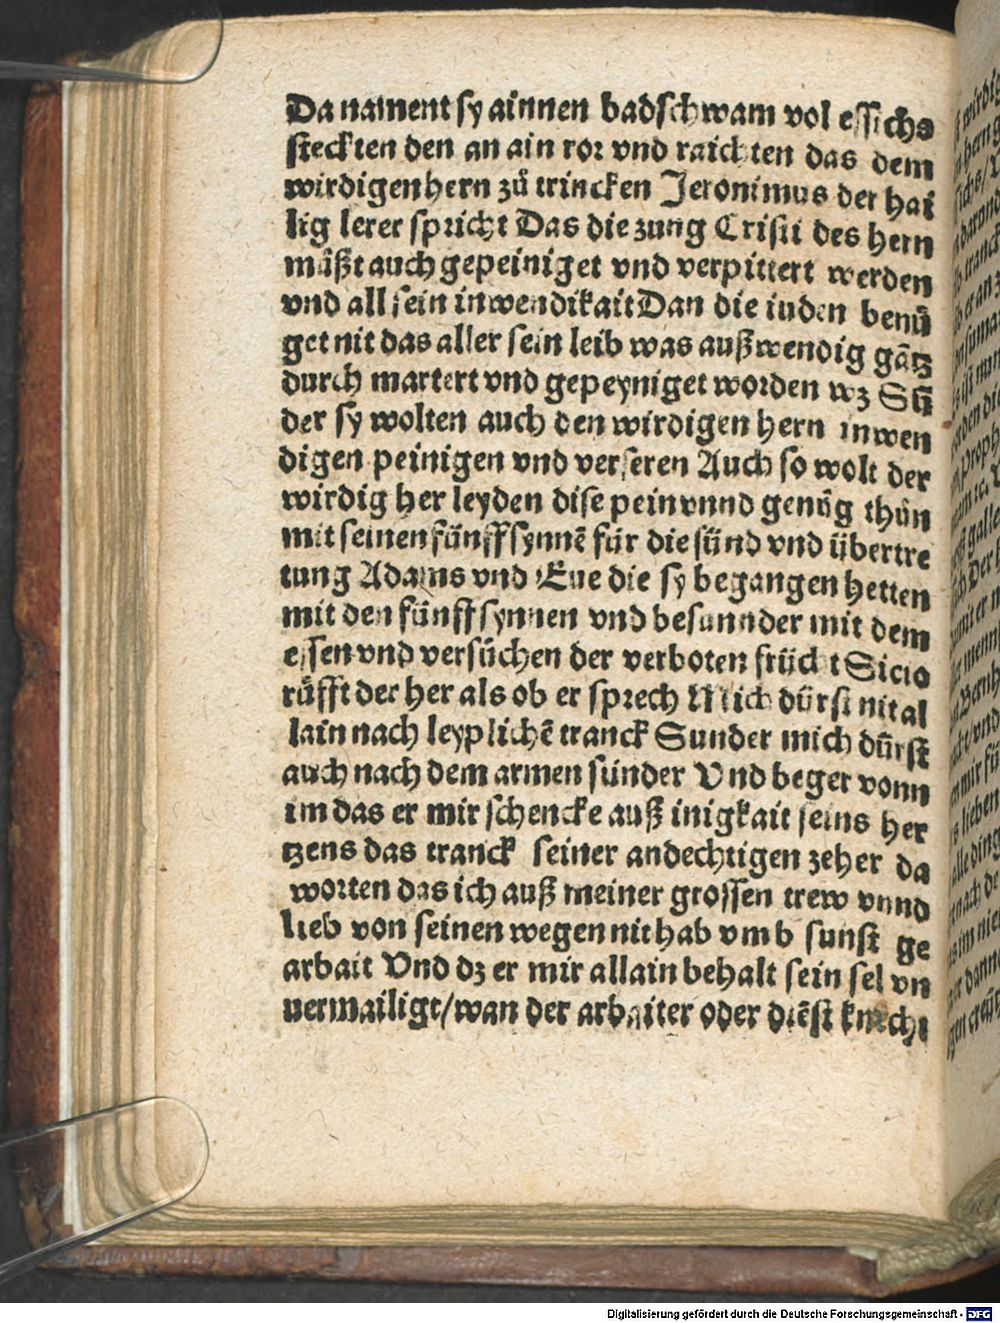 Da nament sy ainnen badschwam vol essichs
steckten den an ain ror vnd raichten das dem
wirdigen hern zů trincken Jeronimus der hai
lig lerer spricht Das die zung Cristi des hern
můßt auch gepeiniget vnd verpittert werden
vnd all sein inwendikait Dan die iuden benů
get nit das aller sein leib was außwendig gātz
durch martert vnd gepeyniget worden wz Sū
der sy wolten auch den wirdigen hern inwen
digen peinigen vnd verseren Auch so wolt der
wirdig her leyden dise pein vnnd genůg thůn
mit seinen fünff synnē für die sünd vnd übertre
tung Adams vnd Eue die sy begangen hetten
mit den fünff synnen vnd besunnder mit dem
essen vnd versůchen der verboten frücht Sicio
růfft der her als ob er sprech Mich dürst nit al
lain nach leyplichē tranck Sunder mich dürst
auch nach dem armen sünder Vnd beger vonn
im das er mir schencke auß inigkait seins her
tzens das tranck seiner andechtigen zeher da
worten das ich auß meiner grossen trew vnnd
lieb von seinen wegen nit hab vmb sunst ge
arbait Vnd dz er mir allain behalt sein sel vn
uermailigt/wan der arbaiter oder diēst knecht
Digitalisierung gefördert durch die Deutsche Forschungsgemeinschaft - DFG